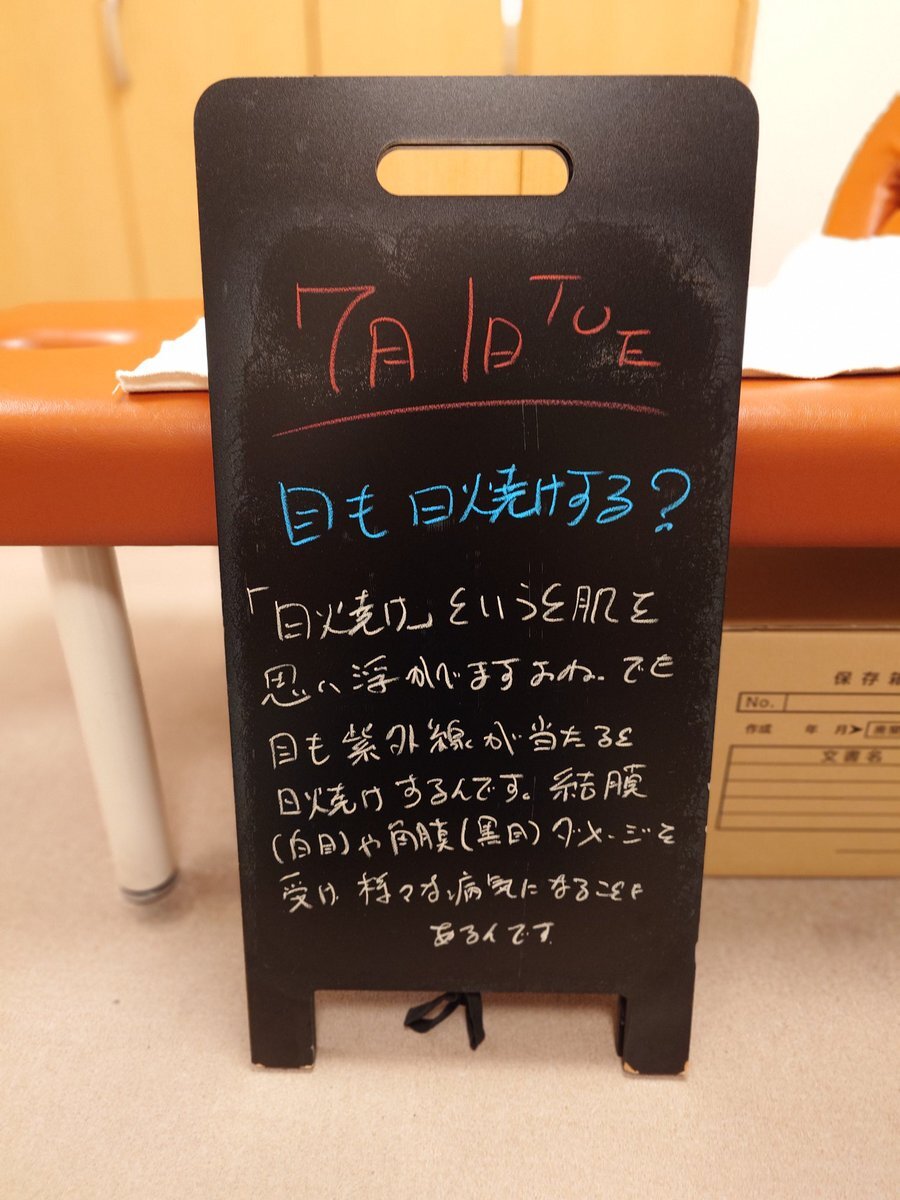 7月1日TUE
目も日焼けする?
「日焼け」というと肌を
思い浮かびますよね。でも
目も紫外線が当たると
日焼けするんです。結膜
(白目)や角膜(黒目)ダメージを
受け様々な病気になることも
あるんです
保存箱
No.
作成 年 月
文書名